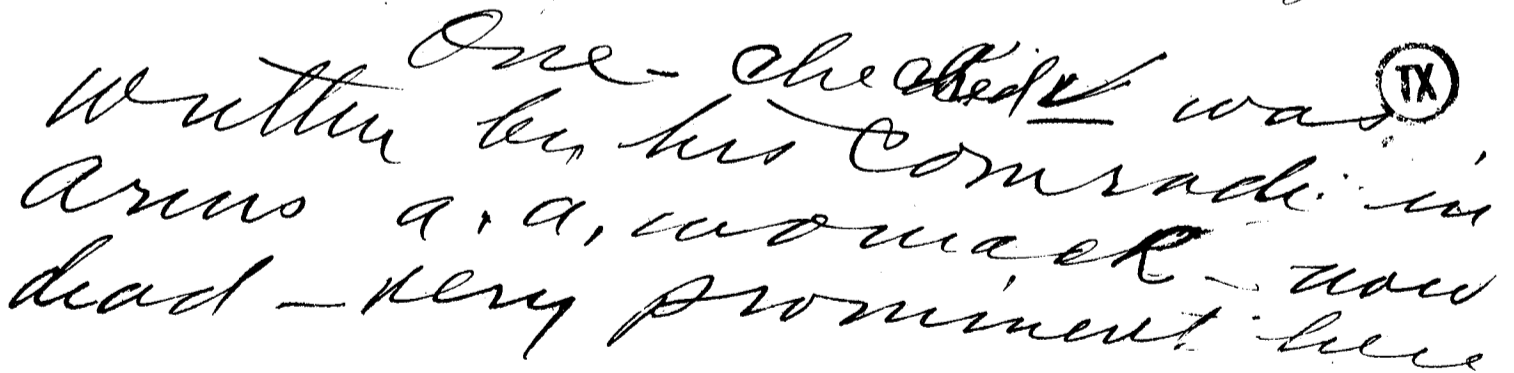 One - checked ✓ was
TX
written by his comrade in
arms a. a. womack - now
dead - very prominent here